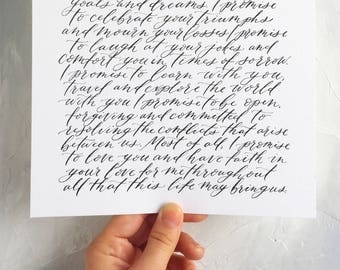 goals and dreams I promise
to celebrate your triumphs
and mourn your losses I promise
to laugh at your jokes and
comfort you in times of sorrow.
I promise to learn with you,
travel and explore the world
with you I promise to be open,
forgiving and committed to
resolving the conflicts that arise
between us. Most of all, I promise
to love you and have faith in
your love for me throughout
all that this life may bring us.